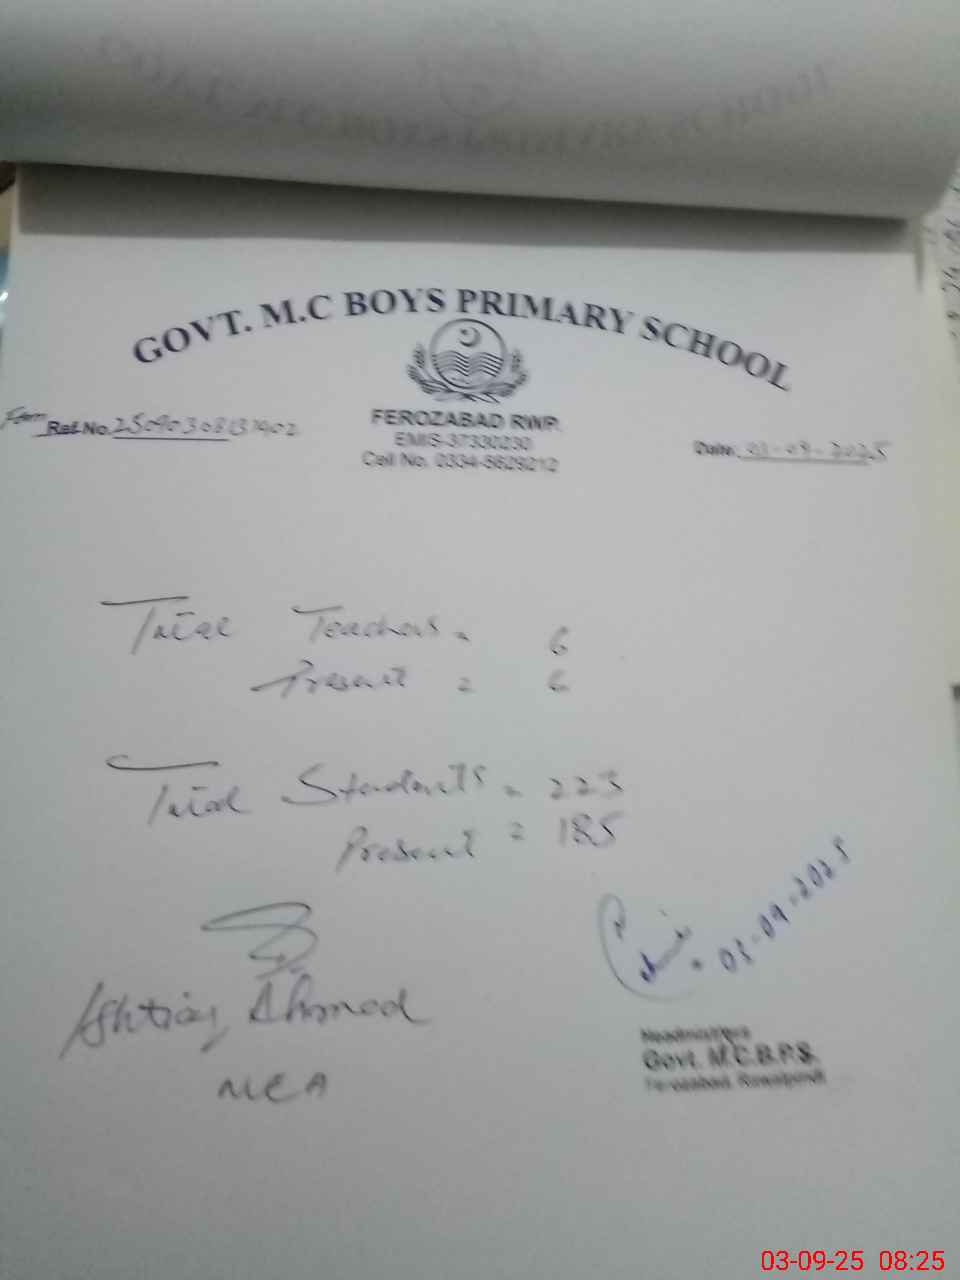 GOVT. M.C BOYS PRIMARY SCHOOL
FEROZABAD RWP.
EMIS-37330230
Cell No. 0334-5629212
Form Ref. No. 25090308131902
Date. 03-09-2025
Total Teachers = 6
Present = 6
Total Students = 223
Present = 185
03-09-2025
Ashtiaq Ahmed
MEA
Headmistress
Govt. M.C.B.P.S.
Ferozabad, Rawalpindi
03-09-25 08:25